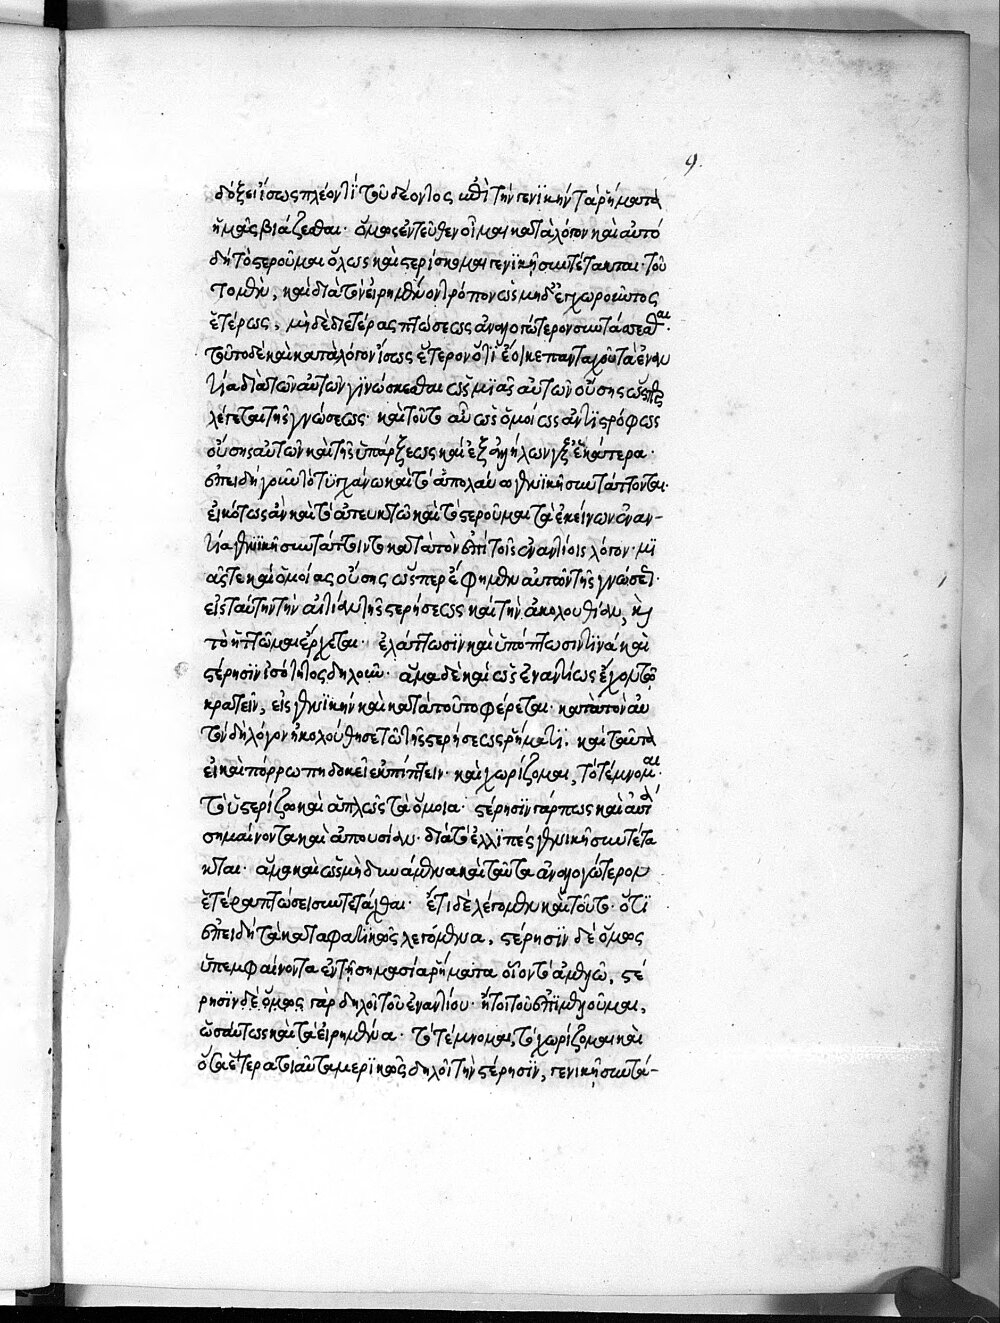 9
δόξει ἴσως πλέον τι τοῦ δέοντος ἐπὶ τὴν γενικήν τὰ ῥήματα
ἡμᾶς βιάζεσθαι· ὅμως ἐντεῦθεν οἶμαι κατὰ λόγον καὶ αὐτό
δὴ τὸ στεροῦμαι ὅλως καὶ στερίσκομαι γενικῇ συντέτακται· τοῦ
το μὲν, καὶ διὰ τὸν εἰρημένον τρόπον ὡς μηδ' ἐγχωροῦντος
ἑτέρως, μηδὲ δι' ἑτέρας πτώσεως ἀναλογώτερον συντάσσεσθαι·
τοῦτο δὲ καὶ κατὰ λόγον ἴσως ἕτερον ὅτι ἔοικε πανταχοῦ τὰ ἐναν
τία διὰ τῶν αὐτῶν γινώσκεσθαι ὡς μιᾶς αὐτῶν οὔσης ὥσπερ
λέγεται τῆς γνώσεως· καὶ τοῦτο αὖ ὡς ὁμοίως ἀντιστρόφως
οὔσης αὐτῶν καὶ τῆς ὑπάρξεως καὶ ἐξ ἀλλήλων ἑκάτερα·
ἐπειδὴ γοῦν τὸ τυγχάνω καὶ τὸ ἀπολαύω γενικῇ συντάττονται·
εἰκότως ἂν καὶ τὸ ἀπευκτῶ καὶ τὸ στεροῦμαι τὰ ἐκείνων ἐναν-
τία γενικῇ συντάττοιντο κατὰ τὸν ἐπὶ τοῖς ἐναντίοις λόγον· μι
ᾶς τε καὶ ὁμοίας οὔσης ὥσπερ ἔφημεν αὐτῶν τῆς γνώσεως·
εἰς ταύτην τὴν αἰτίαν τῆς στερήσεως καὶ τὴν ἀκολουθίαν, καὶ
τὸ ἡττῶμαι ἔρχεται· ἐλάττωσιν καὶ ὑπόπτωσιν τινά καὶ
στέρησιν ἰσότητος δηλοῦν· ἅμα δὲ καὶ ὡς ἐναντίως ἔχον τῷ
κρατεῖν, εἰς γενικήν καὶ κατὰ τοῦτο φέρεται· κατὰ τὸν αὐ
τὸν δὴ λόγον ἠκολούθησε τῷ τῆς στερήσεως ῥήματι. καὶ ταῦτα
εἰ καὶ πόρρω πη δοκεῖ ἐκπίπτειν· καὶ χωρίζομαι, τὸ τέμνομαι·
τὸ ὑστερίζω καὶ ἁπλῶς τὰ ὅμοια· στέρησιν γάρ πως καὶ αὐτὰ
σημαίνοντα καὶ ἀπουσίαν· διὰ τὸ ἐλλιπές γενικῇ συντέτα
κται· ἅμα καὶ ὡς μὴ δυνάμενα καὶ ταῦτα ἀναλογώτερον
ἑτέρᾳ πτώσει συντετάχθαι· ἔτι δὲ λέγομεν καὶ τοῦτο· ὅτι
ἐπειδὴ τὰ καταφατικῶς λεγόμενα, στέρησιν δὲ ὅμως
ὑπεμφαίνοντα ἐν τῇ σημασίᾳ ῥήματα οἷον τὸ ἀμελῶ, στέ
ρησιν δὲ ὅμως γὰρ δηλοῖ τοῦ ἐναντίου· ἤτοι τοῦ ἐπιμελοῦμαι,
ὡσαύτως καὶ τὰ εἰρημένα· τὸ τέμνομαι, τὸ χωρίζομαι καὶ
ὅσα ἕτερα τοιαῦτα μερικῶς δηλοῖ τὴν στέρησιν, γενικῇ συντά-